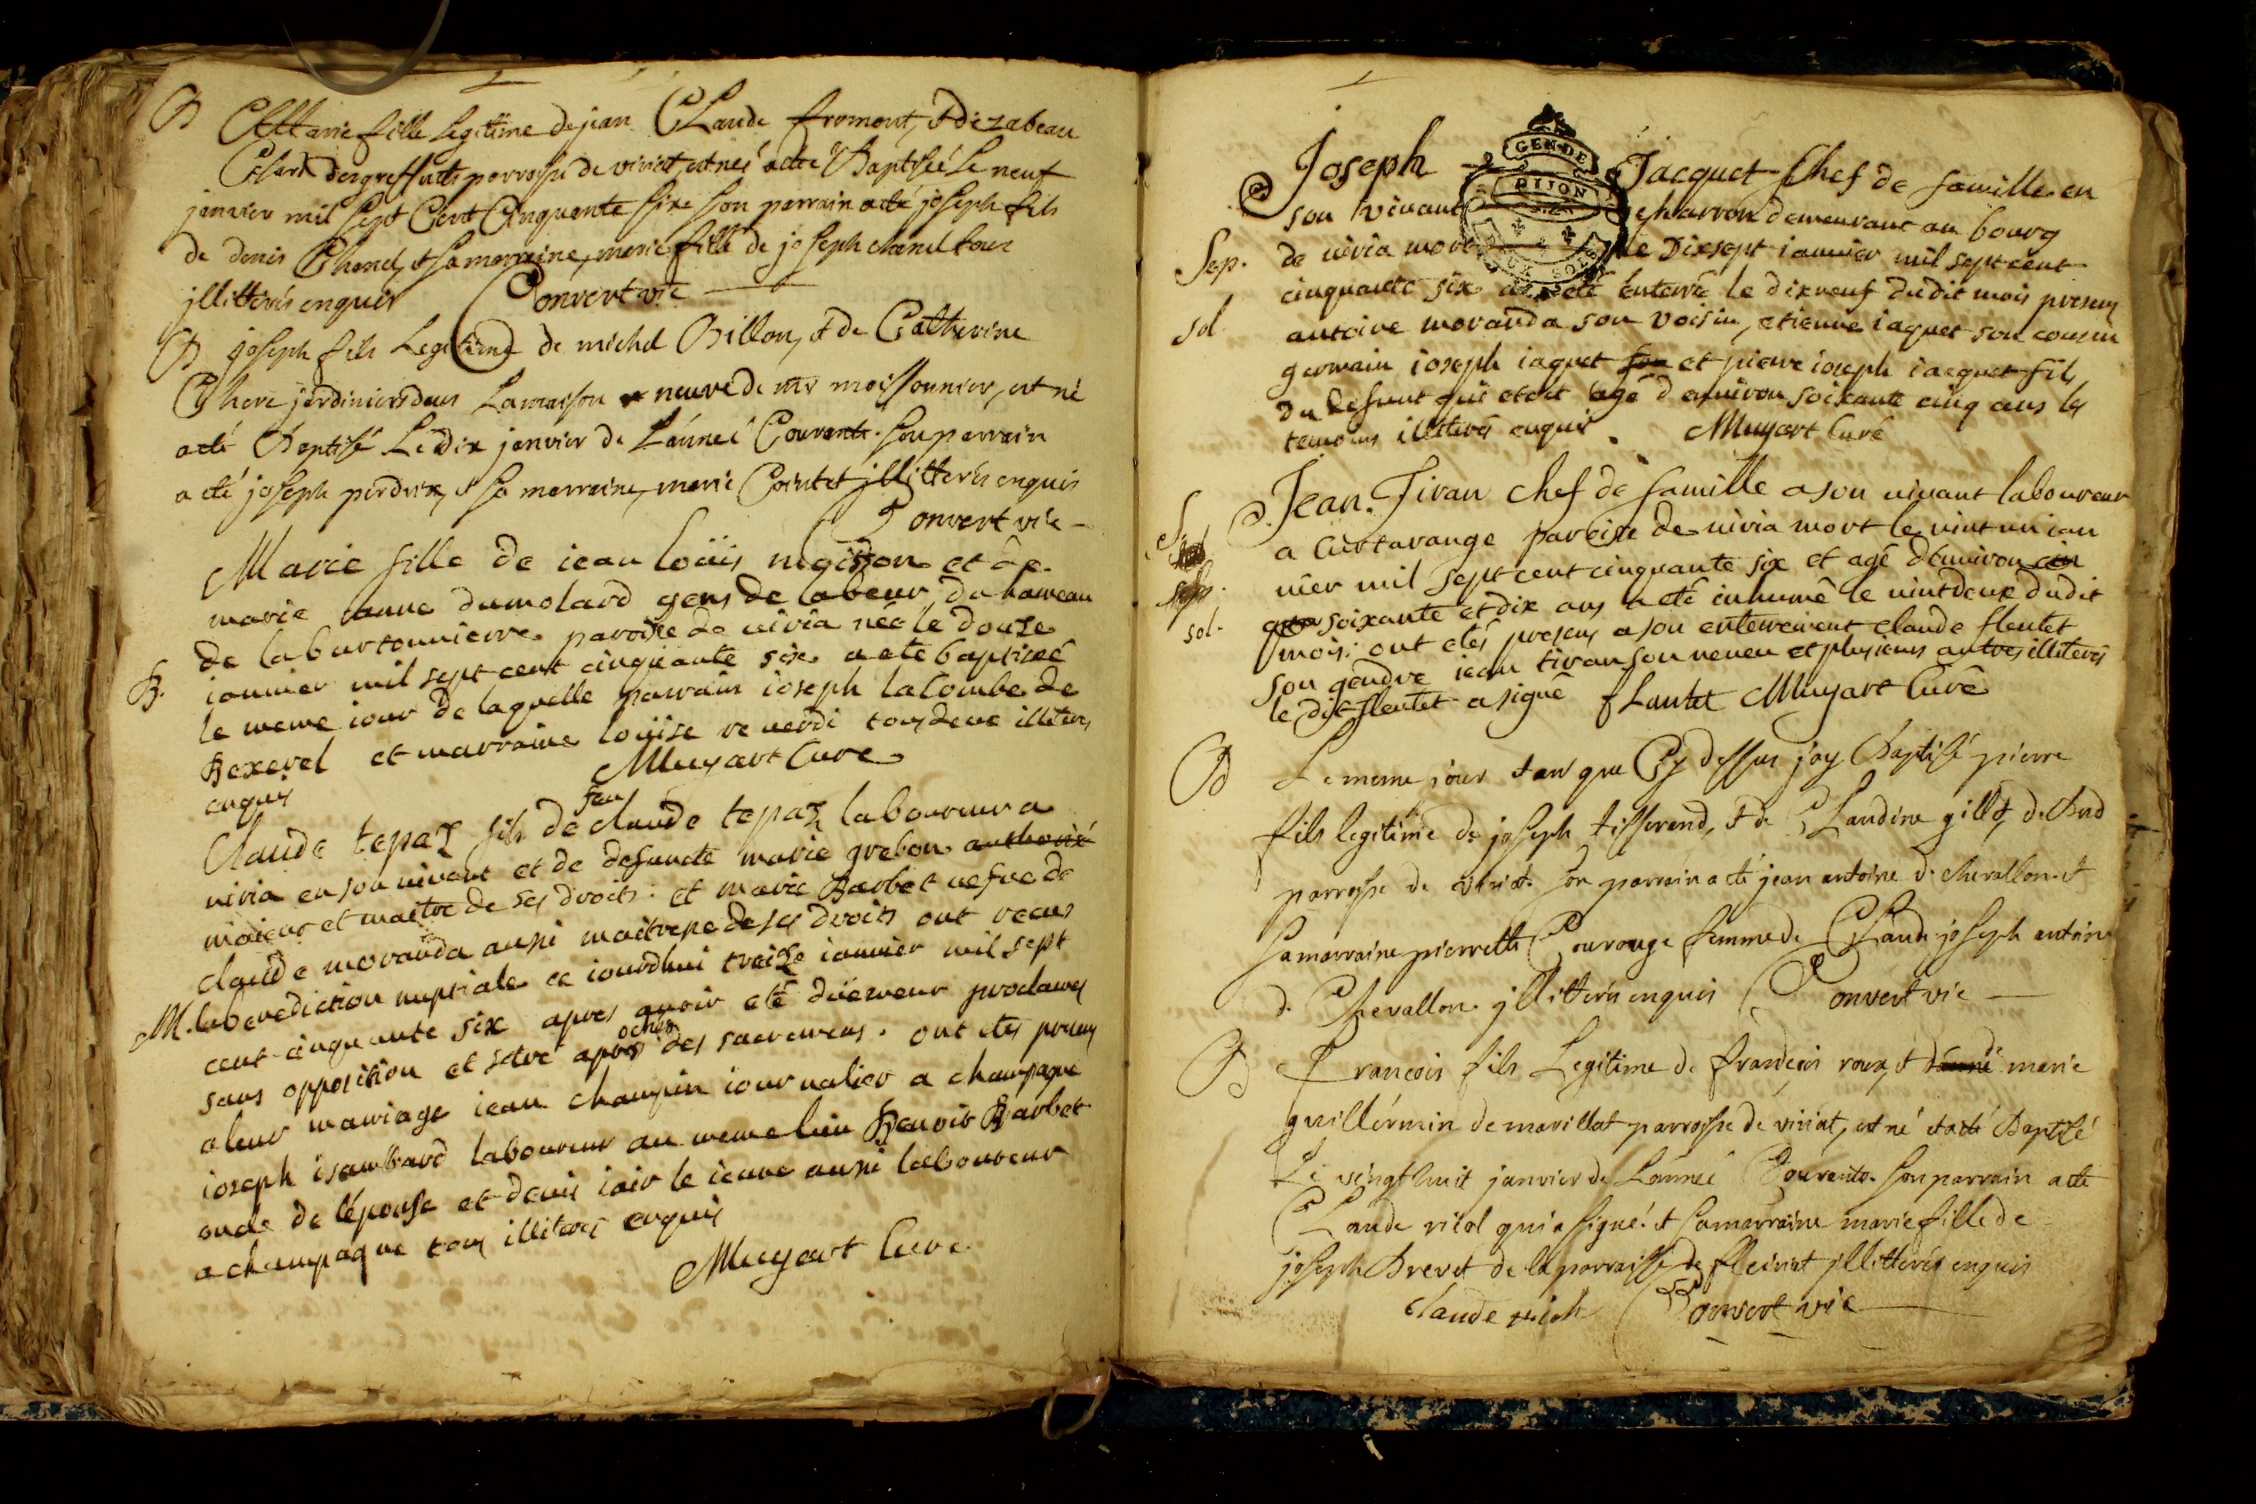 B Marie fille legitime de jean Claude fromont, & d'izabeau
Clard des greffets parroisse de viriat, est neé a été Baptisée le neuf
janvier mil sept Cent Cinquante six son parrain a été joseph fils
de denis Chanel, & sa marraine, marie fille de joseph chanel tous
jllitterés enquis Convert vic
B joseph fils Legitime de michel Billon, & de Catherine
Chere jardiniers dans La maison neuve de mr moissonnier, est né
a été Baptisé Le dix janvier de L'année Courante. son parrain
a été joseph perdrix, & sa marraine, marie Cointet jllitterés enquis
Convert vic
Marie fille de iean loüis nigisson et de
marie anne dumolard gens de labeur du hameau
de la burtonniere paroise de viria née le douze
B. ianvier mil sept cent cinquante six a eté baptiseé
le meme iour de laquelle parrain ioseph lacombe de
Bexerel et marraine loüise reverdi tous deux illiteres
enquis Muyart Curé
feu
Claude tepaz fils de claude tepaz laboureur a
viria en son vivant et de defuncte marie grebon authorisé
maieur et maitre de ses droits. et marie Barbet vefve de
claude moranda aussi maitresse de ses droits ont receus
M. la benediction nuptiale ce iourdhui treize ianvier mil sept
cent cinquante six apres avoir eté düement proclamés
sans opposition et s'etre aprochés des sacremens. ont etés presens
a leur mariage iean champin iournalier a champagne
ioseph isambard laboureur au meme lieu Benoit Barbet
oncle de l'épouse et denis iair le ieune aussi laboureur
a champagne tous illiterés enquis
Muyart Curé
Joseph Jacquet Chef de famille en
GEN DE
DIJON
son vivant charron demeurant au bourg
Sep. de viria mort le dixsept ianvier mil sept cent
cinquante six a eté enterré le dixneuf dudit mois presens
sol. antoine moranda son voisin, etienne iaquet son cousin
germain ioseph iaquet son et pierre ioseph iacquet fils
du defunt qui etoit agé d'environ soixante cinq ans les
temoins illiterés enquis. Muyart Curé
Jean Tivan chef de famille a son vivant laboureur
a Curtarange paroise de viria mort le vint un ian
sep. vier mil sept cent cinquante six et agé d'environ
sol. soixante et dix ans a eté inhumé le vintdeux dudit
mois: ont etés presens a son enterrement claude fleutet
son gendre iean tivan son neveu et plusieurs autres illiterés
le dit fleutet a signé fLautet Muyart Curé
B Le meme jour & an que Cy dessus jay Baptisé pierre
fils legitime de joseph tisserand, & de Claudine gillet, de
parroisse de viriat. son parrain a été jean antoine de chevallon. &
sa marraine pierrette Courouge femme de Claude joseph antoine
de Chevallon. jllitterés enquis Convert vic
B Francois fils Legitime de francois roux, & d'anne marie
guillérmin de marillat parroisse de viriat, est né & a été Baptizé
Le vingt huit janvier de L'année Courante. son parrain a été
Claude violl qui a signé. & sa marraine marie fille de
joseph Brevet de la parroisse de fleiriat jllitterés enquis
claude violl Convert vic